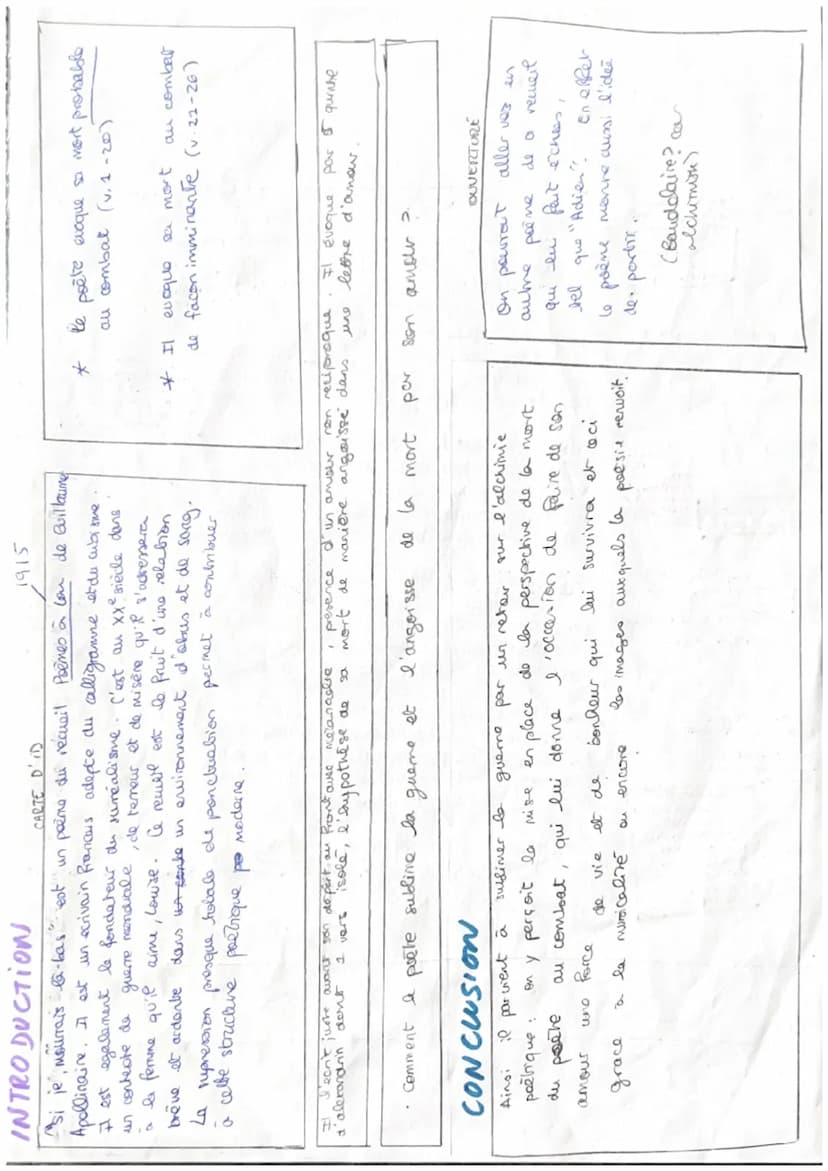 INTRODUCTION
CARTE D'ID
1915
"Si je mourrais là-bas" est un poème du recueil Poèmes à Lou de Guillaume
Apollinaire. Il est un écrivain français adepte du calligramme et du cubisme.
Il est egalement le fondateur du surréalisme. C'est au XXe siècle dans
un contexte de guerre mondiale, de terreur et de misère qu'il s'adressera
a la femme qu'il aime, Louise. Ce recueil est le fruit d'une relation
brève et ardente dans un environnement d'obus et de sang.
La supression presque totale de ponctuation permet à contribuer
à cette structure poétique moderne.
* Le poète évoque sa mort probable
au combat (v. 1-20)
* Il evoque sa mort au combat
de façon imminante (v. 21-26)
Il s'ecrit juste avant son départ au Front avec mélancolie, présence d'un amour non réciproque. Il évoque par 5 quinte
d'alexandrin dont 1 vers isolé, l'hypothèse de sa mort de manière angoissé dans une lettre d'amour.
. Comment le poète sublime la guerre et l'angoisse de la mort par son amour ?
CONCLUSION
Ainsi il parvient à sublimer la guerre par un retour sur l'alchimie
poétique : on y perçoit la mise en place de la perspective de la mort
du poète au combat, qui lui donne l'occasion de faire de son
amour une force de vie et de bonheur qui lui survivra et ceci
grace a la musicalité ou encore les images auxquels la poésie renvoit.
OUVERTURE
On pourrait aller vers un
autre poème de a recueil
qui lui fait échos,
tel que "Adieu". En effet
le poème montre aussi l'idée
de partir.
(Baudelaire? car
alchimism)